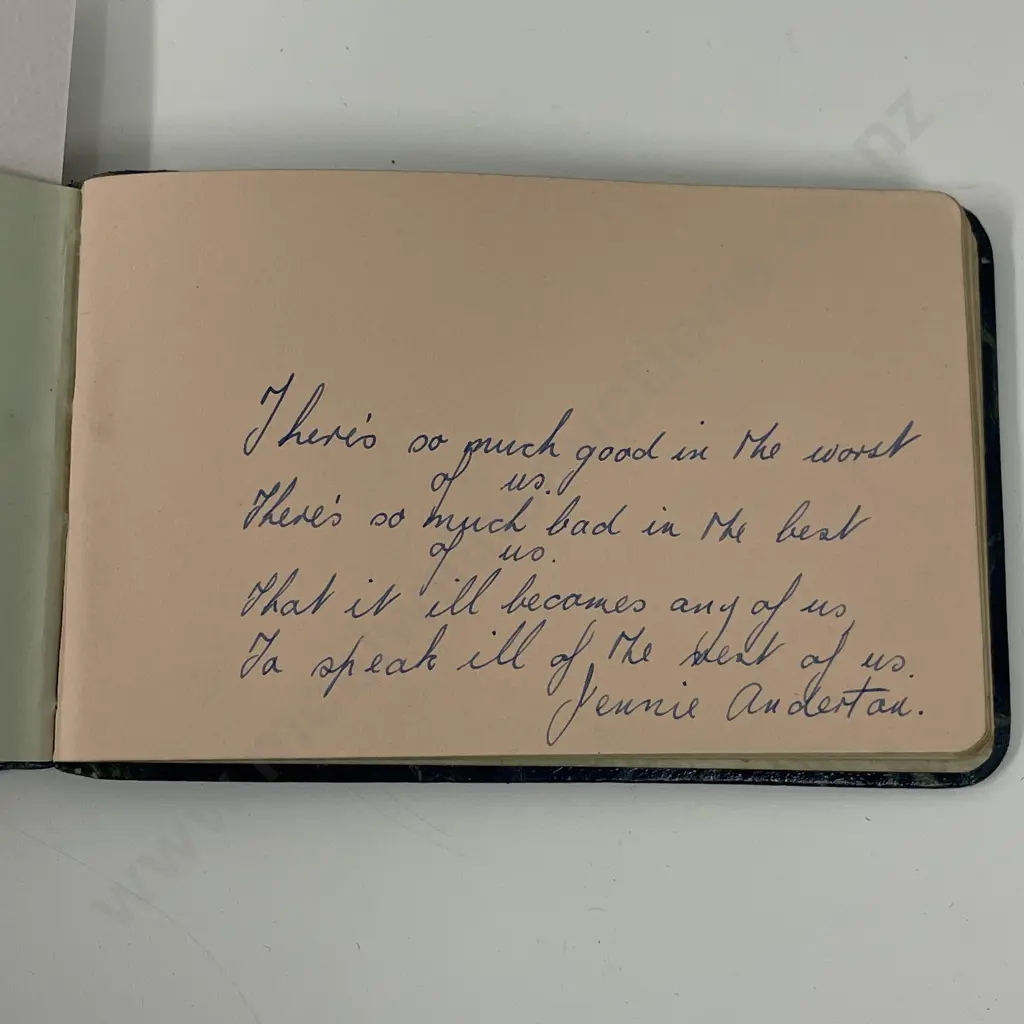 There's so much good in the worst
of us.
There's so much bad in the best
of us.
That it ill becomes any of us,
To speak ill of the rest of us.
Jennie Anderton.